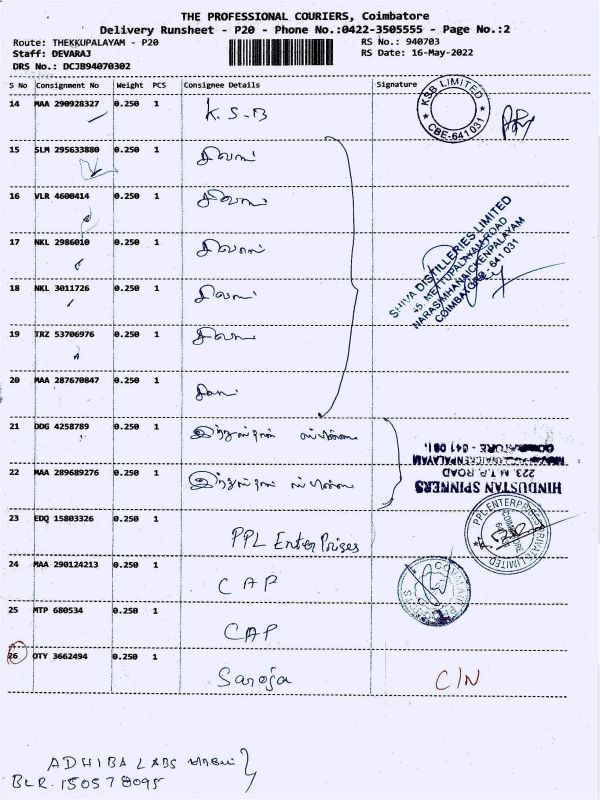 THE PROFESSIONAL COURIERS, Coimbatore
Delivery Runsheet - P20 - Phone No.:0422-3505555 - Page No.:2
Route: THEKKUPALAYAM - P20 RS No.: 940703
Staff: DEVARAJ RS Date: 16-May-2022
DRS No.: DCJB94070302
S No Consignment No Weight PCS Consignee Details Signature
14 MAA 290928327 0.250 1 K.S.B
KSB LIMITED
* CBE-641 031 *
15 SLM 295633880 0.250 1 சிவாஸ்
16 VLR 4600414 0.250 1 சிவாஸ்
17 NKL 2986010 0.250 1 சிவாஸ்
18 NKL 3011726 0.250 1 சிவாஸ்
19 TRZ 53706976 0.250 1 சிவாஸ்
20 MAA 287670847 0.250 1
SHIVA DISTILLERIES LIMITED
45, METTUPALAYAM ROAD
NARASIMHANAICKENPALAYAM
COIMBATORE - 641 031
21 DDG 4258789 0.250 1 இந்துஸ்தான்
22 MAA 289689276 0.250 1 இந்துஸ்தான்
HINDUSTAN SPINNERS
223, M.T.P. ROAD
COIMBATORE - 641 031.
23 EDQ 15803326 0.250 1 PPL EnterPrises
PPL ENTERPRISES PRIVATE LIMITED
24 MAA 290124213 0.250 1 CAP
25 MTP 680534 0.250 1 CAP
26 OTY 3662494 0.250 1 Saroja C/N
ADHIBA LABS
BLR. 150578095